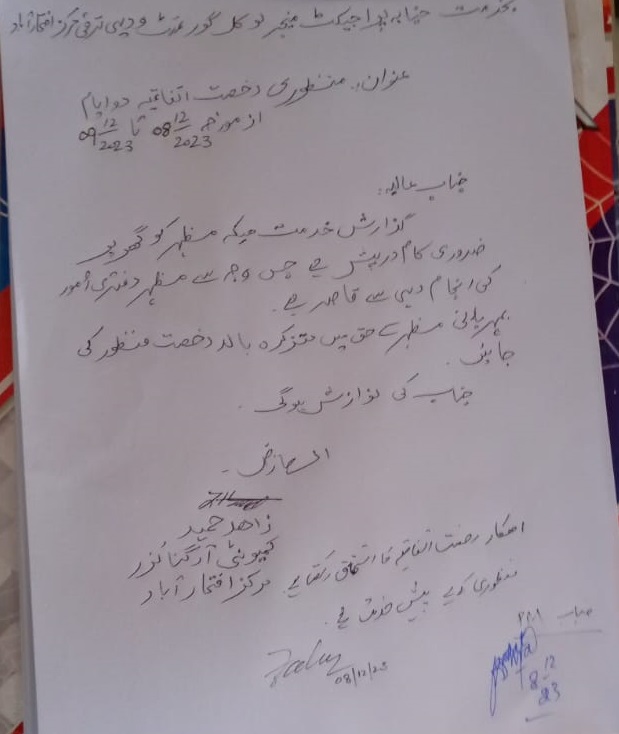 بخدمت جناب پراجیکٹ منیجر لوکل گورنمنٹ و دیہی ترقی مرکز افتخارآباد
عنوان:۔ منظوری رخصت اتفاقیہ دو ایام
از مورخہ 08/12/2023 تا 09/12/2023
جناب عالیہ:
گذارش خدمت ہیکہ مظہر کو گھریلو
ضروری کام درپیش ہے جس وجہ سے مظہر دفتری امور
کی انجام دہی سے قاصر ہے۔
بمہربانی مظہر کے حق میں متذکرہ بالا رخصت منظور کی
جائے۔
جناب کی نوازش ہوگی۔
العارض۔
زاھد حمید
کمیونٹی آرگنائزر
مرکز افتخار آباد
اہلکار رخصت اتفاقیہ کا استحقاق رکھتا ہے۔
منظوری کیلئے پیش خدمت ہے۔
08/12/23
جناب PM
8/12/23